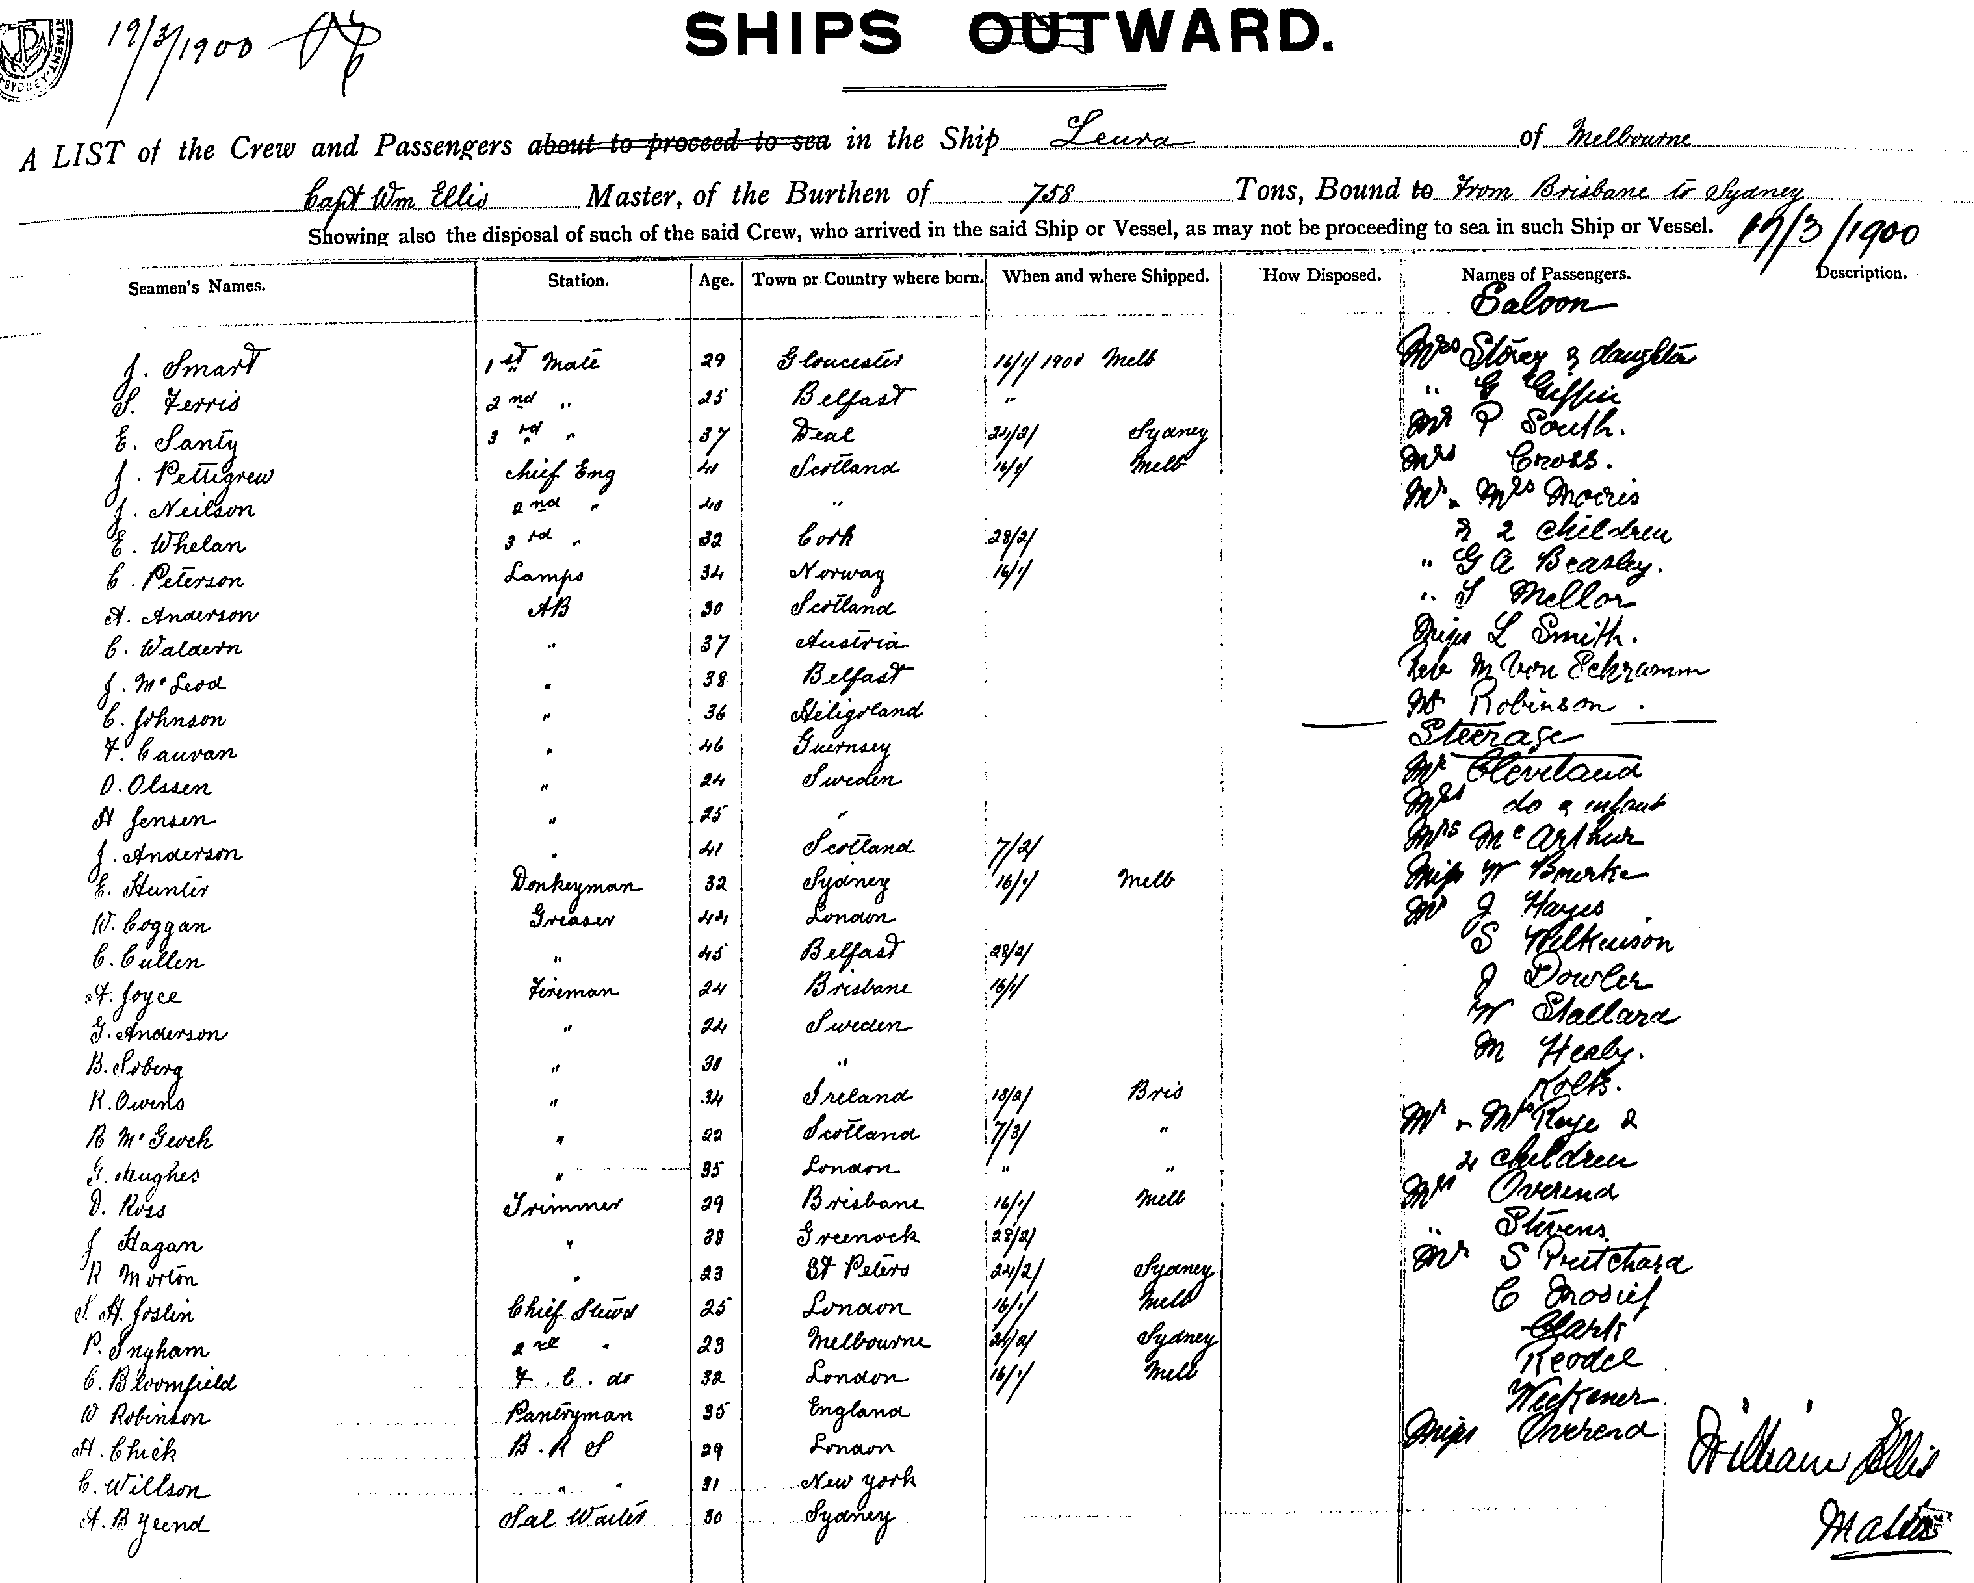 19/3/1900
SHIPS OUTWARD.
A LIST of the Crew and Passengers about to proceed to sea in the Ship Leura of Melbourne
Capt Wm Ellis Master, of the Burthen of 758 Tons, Bound to From Brisbane to Sydney
Showing also the disposal of such of the said Crew, who arrived in the said Ship or Vessel, as may not be proceeding to sea in such Ship or Vessel. 19/3/1900
Seamen's Names. Station. Age. Town or Country where born. When and where Shipped. How Disposed. Names of Passengers. Description.
Saloon
J. Smart 1st Mate 29 Gloucester 16/1/1900 Melb Mrs Storey & daughter
S. Ferris 2nd " 25 Belfast " " G Giffin
E. Santy 3rd " 37 Deal 24/2/ Sydney Mr P South.
J. Pettigrew Chief Eng 41 Scotland 16/1/ Melb Mrs Cross.
J. Neilson 2nd " 40 " Mr & Mrs Morris
E. Whelan 3rd " 32 Cork 28/2/ & 2 children
C. Peterson Lamps 34 Norway 16/1/ " G A Beasley.
A. Anderson AB 30 Scotland " S Mellor
C. Waldern " 37 Austria Miss L Smith.
J. McLeod " 38 Belfast Rev M Von Schramm
C. Johnson " 36 Heligoland Mr Robinson.
F. Cauvan " 46 Guernsey Steerage
O. Olssen " 24 Sweden Mr Cleveland
A Jensen " 25 " Mrs do & infant
J. Anderson " 41 Scotland 7/2/ Mrs McArthur
E. Hunter Donkeyman 32 Sydney 16/1/ Melb Miss W Bourke
W. Coggan Greaser 44 London Mr J Hayes
C. Cullen " 45 Belfast 28/2/ S Wilkinson
A. Joyce Fireman 24 Brisbane 16/1/ J Dowler
G. Anderson " 24 Sweden W Stallard
B. Soberg " 30 " M Healy.
R. Owens " 34 Ireland 13/2/ Bris Kolb.
R McGeoch " 22 Scotland 7/3/ " Mr & Mrs Raye &
G. Hughes " 35 London " " 4 children
D. Ross Trimmer 29 Brisbane 16/1/ Melb Mrs Overend
J Hagan " 38 Greenock 28/2/ " Stevens
R Morton " 23 St Peters 24/2/ Sydney Mr S Pritchard
S. H. Joslin Chief Stewd 25 London 16/1/ Melb C
P. Ingham 2nd " 23 Melbourne 24/2/ Sydney Clark
C. Bloomfield F. C. do 32 London 16/1/ Melb Reodel
W Robinson Pantryman 35 England
A. Chick B. R S 29 London Miss Overend
C. Willson " " 31 New York
A. B Yeend Sal Waiter 30 Sydney
William Ellis
Master